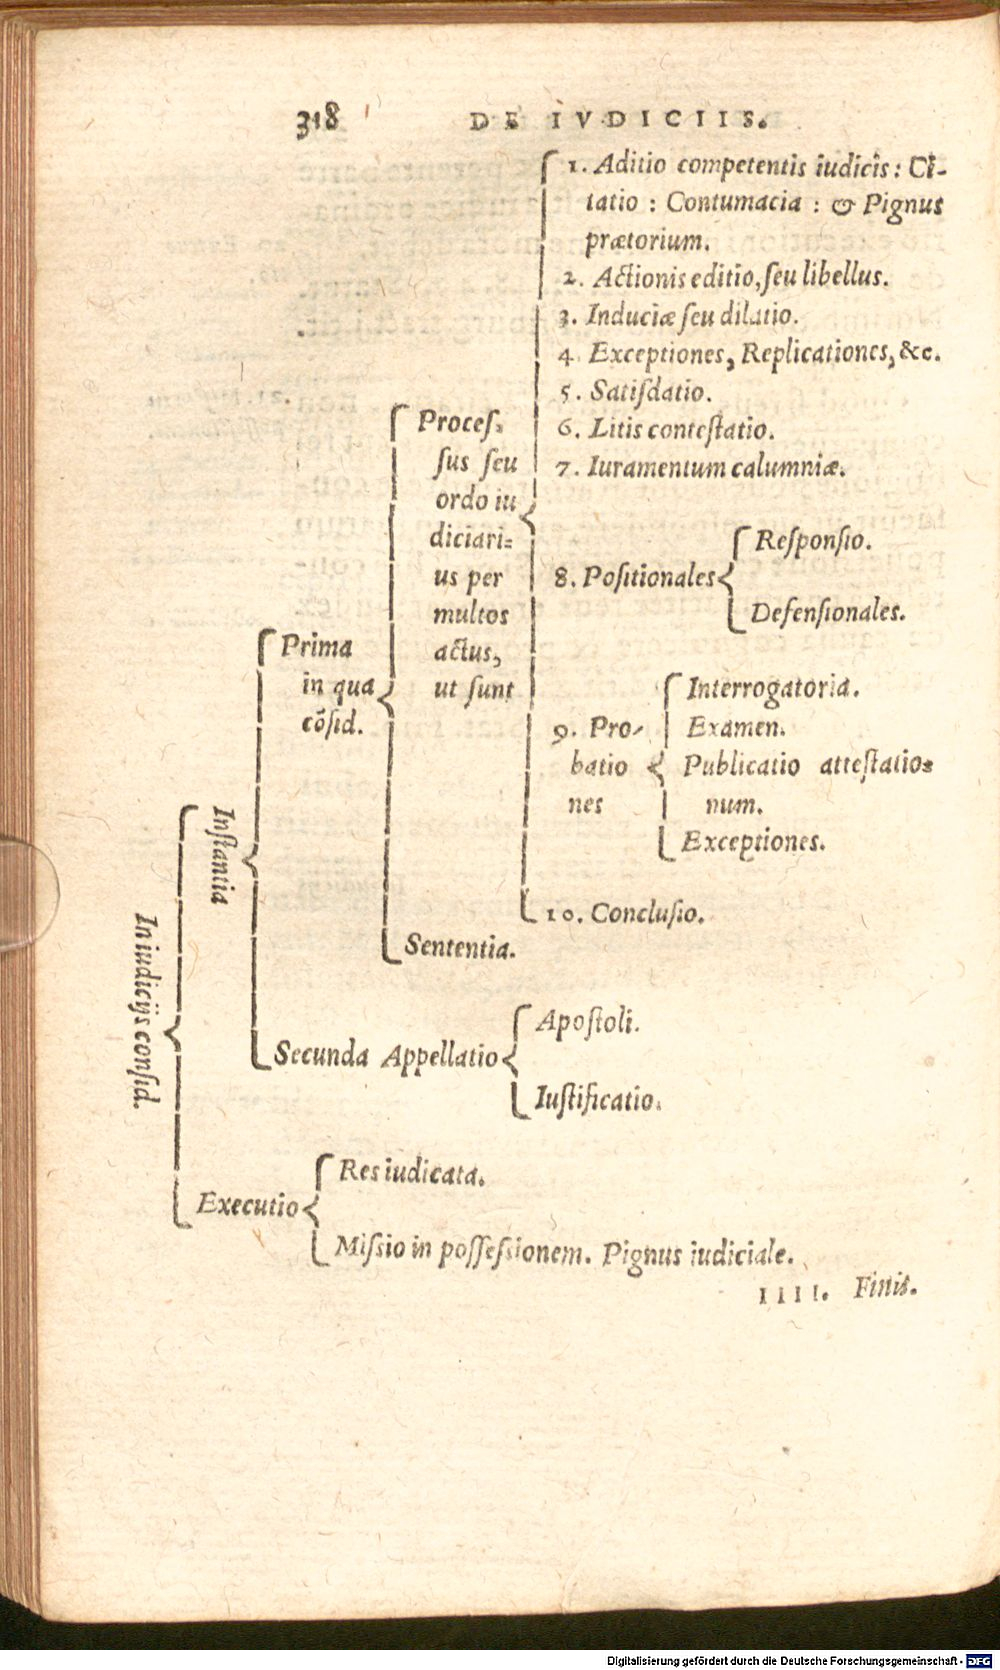 318 DE IVDICIIS.
1. Aditio competentis iudicis: Ci-
tatio : Contumacia : & Pignus
prætorium.
2. Actionis editio, ſeu libellus.
3. Induciæ ſeu dilatio.
4. Exceptiones, Replicationes, &c.
5. Satiſdatio.
6. Litis conteſtatio.
7. Iuramentum calumniæ.
Proceſ-
ſus ſeu
ordo iu
diciari-
us per
multos
actus,
ut ſunt
Reſponſio.
8. Poſitionales
Defenſionales.
Prima
in qua
cõſid.
Interrogatoria.
9. Pro-
batio
nes
Examen.
Publicatio atteſtatio-
num.
Exceptiones.
Inſtantia
10. Concluſio.
Sententia.
In iudicijs conſid.
Apoſtoli.
Secunda Appellatio
Iuſtificatio.
Res iudicata.
Executio
Miſsio in poſſeſsionem. Pignus iudiciale.
IIII. Finis.
Digitalisierung gefördert durch die Deutsche Forschungsgemeinschaft - DFG